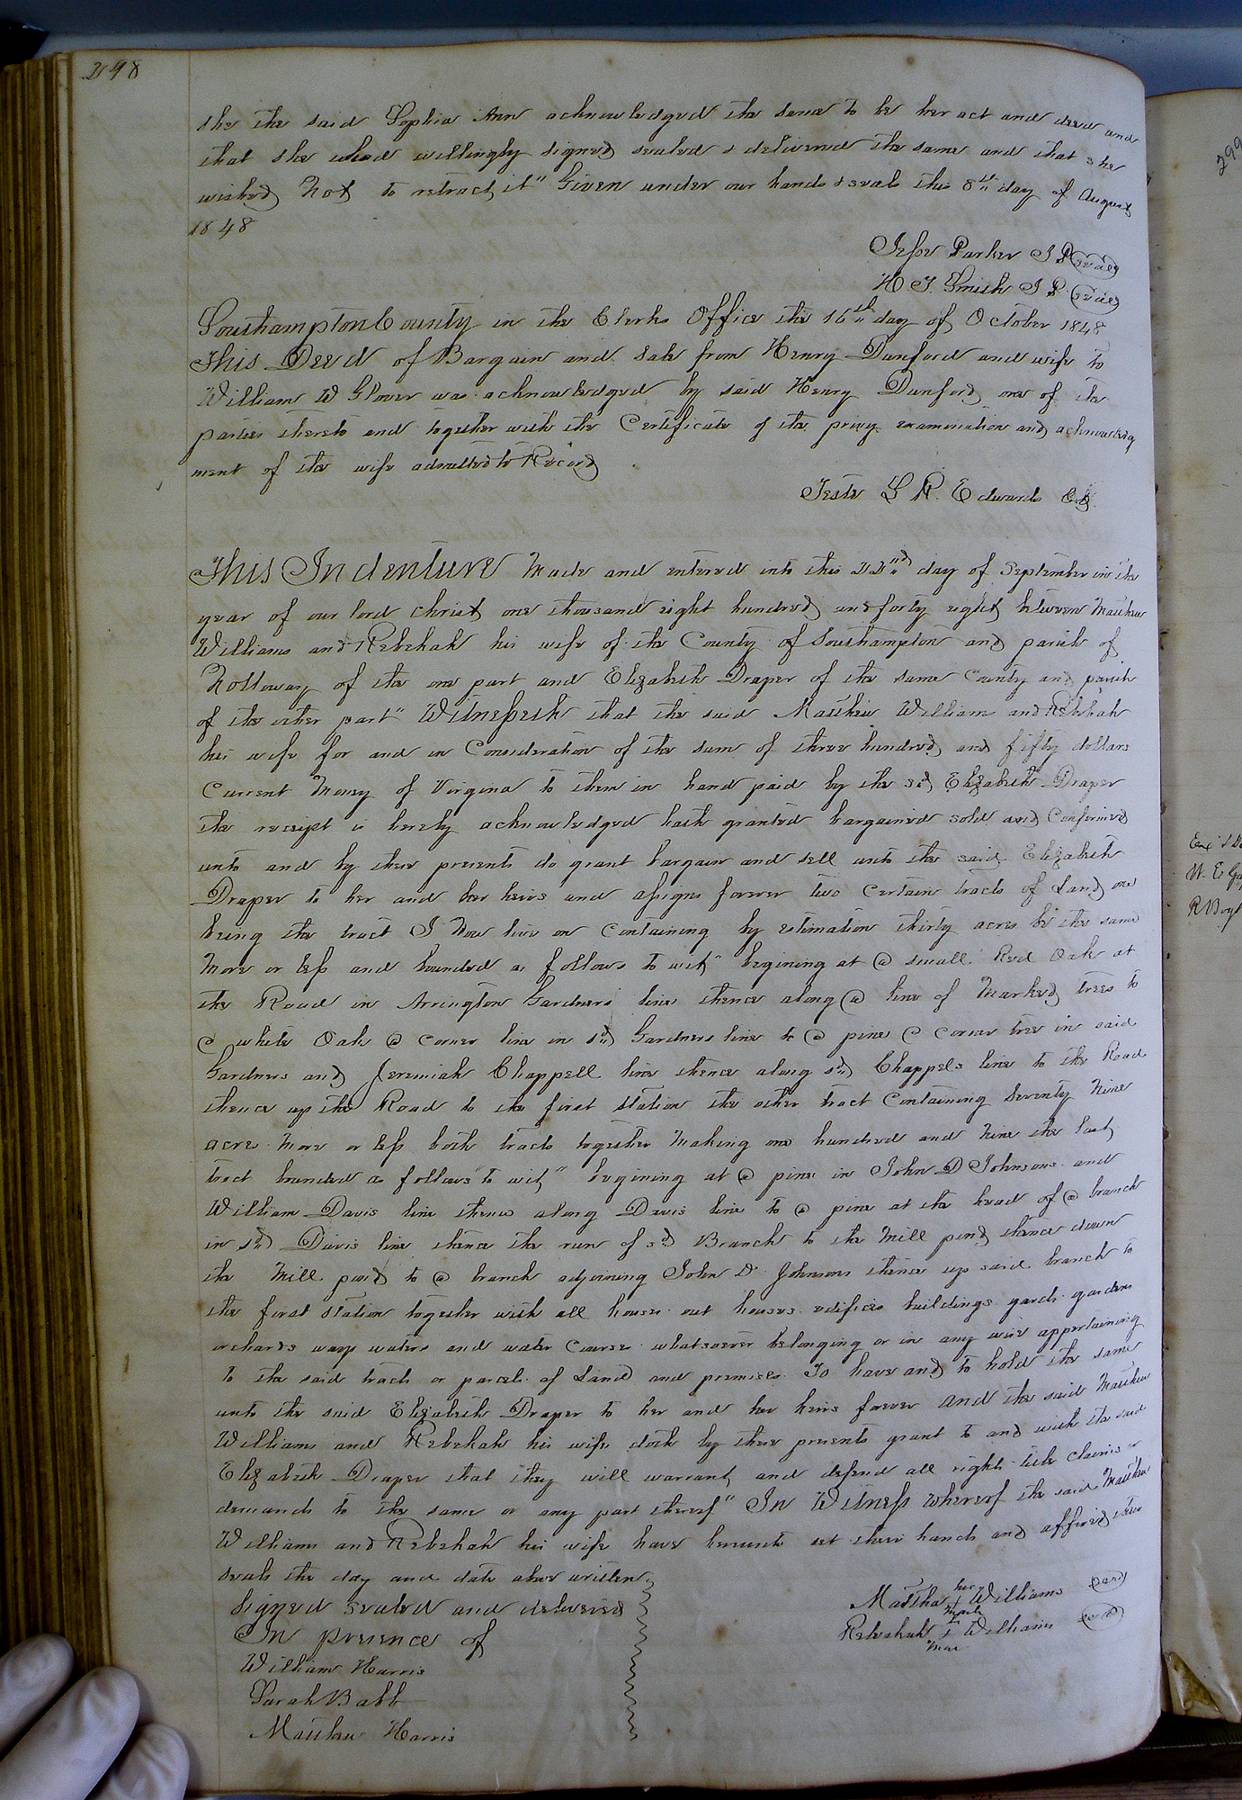 298
she the said Sophia Ann acknowledged the same to be her act and deed and
that she whad willingly signed sealed & delivered the same and that she
wished Not to retract it" Given under our hands & seals this 8th day of August
1848
Jesse Parker J P (seal)
H J. Smith J P. (seal)
Southampton County in the Clerks Office the 16th day of October 1848
This Deed of Bargain and Sale from Henry Dunford and wife to
William W Glover was acknowledged by said Henry Dunford one of the
parties thereto and together with the Certificate of the privy examination and acknowledg
ment of the wife admitted to Record
Teste L R. Edwards Clk
This Indenture Made and entered into this 22nd day of September in the
year of our lord christ one thousand eight hundred and forty eight between Matthew
Williams and Rebekah his wife of the County of Southampton and parish of
Nottoway of the one part and Elizabeth Draper of the same County and parish
of the other part" Witnesseth that the said Matthew William and Rebekah
his wife for and in Consideration of the sum of three hundred and fifty dollars
Current Money of Virgina to them in hand paid by the sd Elizabeth Draper
the receipt is hereby acknowledged hath granted bargained sold and Confirmed
unto and by these presents do grant bargain and sell unto the said Elizabeth
Draper to her and her heirs and assigns forever two Certain tracts of Land one
being the tract I Now live on Containing by estimation thirty acres be the same
More or less and bounded as follows to wit" begining at a small Red Oak at
the Road in Arrington Gardners line thence along a line of Marked trees to
a white Oak a corner line in sd Gardners line to a pine a corner tree in said
Gardners and Jeremiah Chappell line thence along sd Chappels line to the Road
thence up the Road to the first Station the other tract Containing Seventy Nine
acre More or less both tracts together Making one hundred and Nine the last
tract bounded as follows to wit" begining at a pine in John D Johnsons and
William Davis line thence along Davis line to a pine at the head of a branch
in sd Davis line thence the run of sd Branch to the Mill pond thence down
the Mill pond to a branch adjoining John D. Johnsons thence up said branch to
the first Station together with all houses out houses edifices buildings gards gardens
orchards ways waters and water Course whatsoever belonging or in any wise appertaining
to the said tracts or parcels of Land and premises To have and to hold the same
unto the said Elizabeth Draper to her and her heirs forever And the said Matthew
Williams and Rebekah his wife doth by these presents grant to and with the said
Elizabeth Draper that they will warrant and defend all right title claims or
demands to the same or any part thereof" In Witness whereof the said Matthew
Williams and Rebekah his wife have hereunto set their hands and affixed their
seals the day and date above written
Signed sealed and delivered
In presence of
William Harris
Sarah Babb
Matthew Harris
his
Matthew + Williams (seal)
mark
Rebekah + Williams (seal)
mark
299